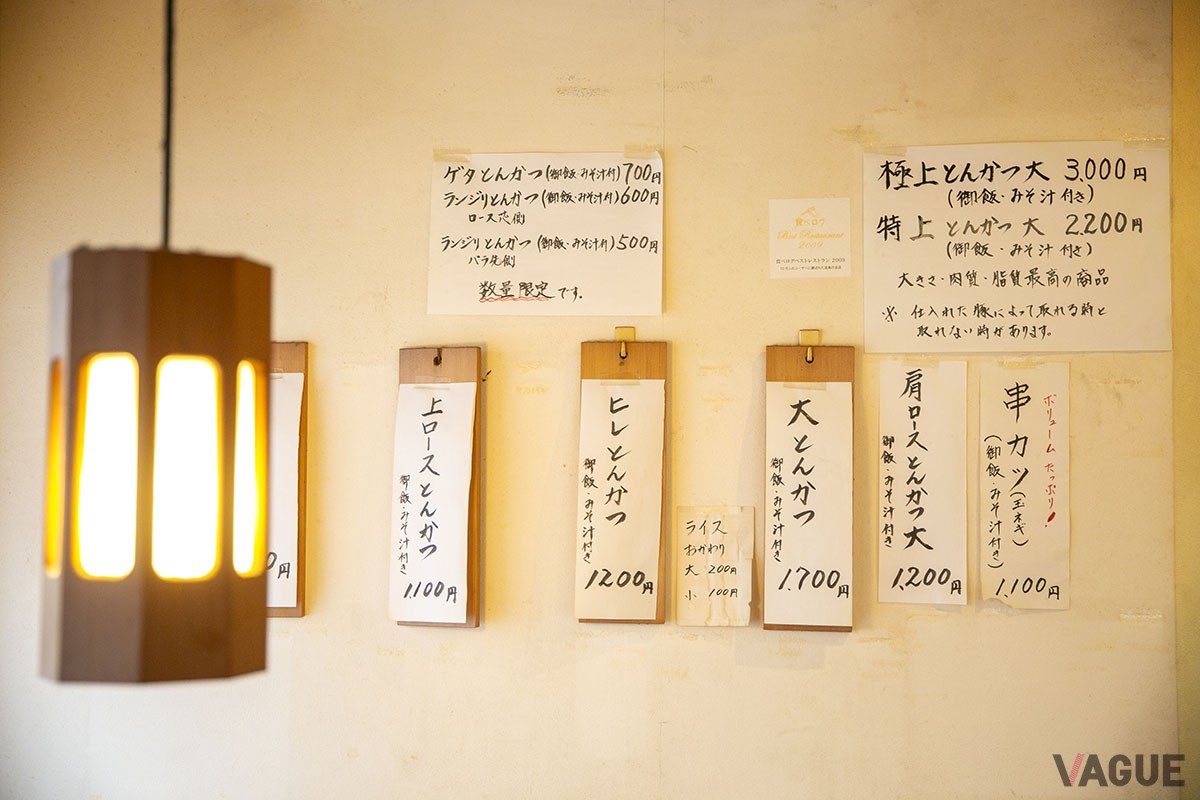 ゲタとんかつ(御飯・みそ汁付)700円
ランジリとんかつ(御飯・みそ汁付)600円
ロース芯側
ランジリとんかつ(御飯・みそ汁付)500円
バラ先側
数量限定です。
食べログ
Best Restaurant
2009
食べログベストレストラン 2009
極上とんかつ大 3,000円
(御飯・みそ汁付き)
特上とんかつ大 2,200円
(御飯・みそ汁付き)
大きさ・肉質・脂質最高の商品
※ 仕入れた豚によって取れる時と
取れない時があります。
ボリュームたっぷり!
串カツ(玉ネギ)
(御飯・みそ汁付き)
1,100円
肩ロースとんかつ大
御飯・みそ汁付き
1,200円
大とんかつ
御飯・みそ汁付き
1,700円
ライス
おかわり
大 200円
小 100円
ヒレとんかつ
御飯・みそ汁付き
1200円
上ロースとんかつ
御飯・みそ汁付き
1,100円
0円
VAGUE